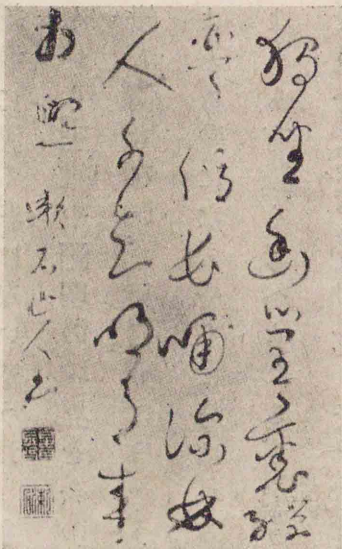 獨坐幽篁裏彈
琴復長嘯深林
人不知明月来
相照 漱石山人書